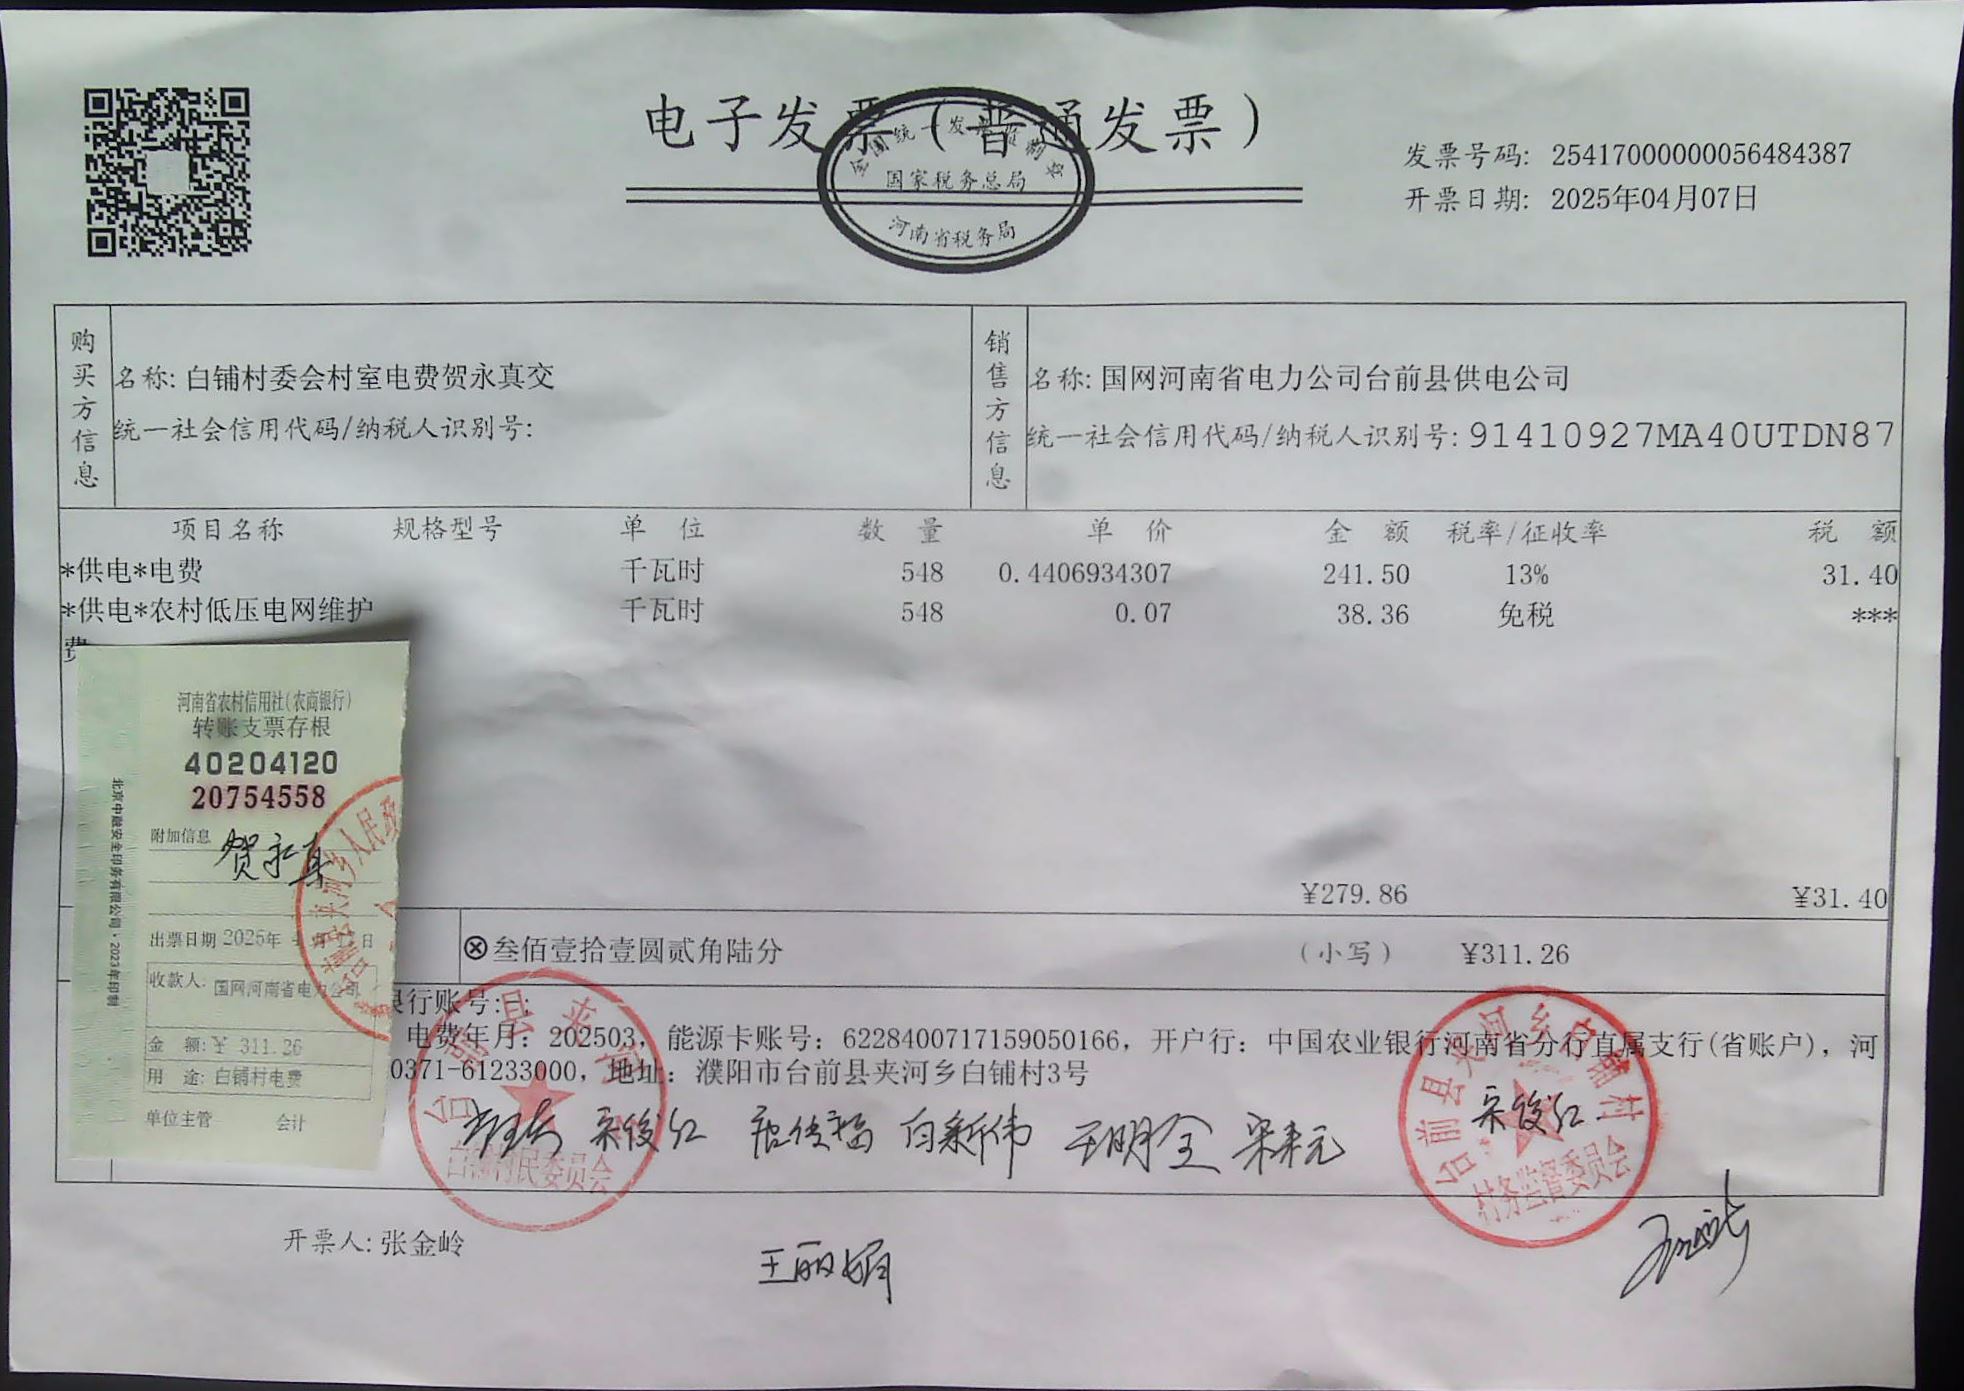 电子发票（普通发票）
全国统一发票监制章
国家税务总局
河南省税务局
发票号码: 25417000000056484387
开票日期: 2025年04月07日
购买方信息
名称: 白铺村委会村室电费贺永真交
统一社会信用代码/纳税人识别号:
销售方信息
名称: 国网河南省电力公司台前县供电公司
统一社会信用代码/纳税人识别号: 91410927MA40UTDN87
项目名称 规格型号 单 位 数 量 单 价 金 额 税率/征收率 税 额
*供电*电费 千瓦时 548 0.4406934307 241.50 13% 31.40
*供电*农村低压电网维护 千瓦时 548 0.07 38.36 免税 ***
费
¥279.86 ¥31.40
ⓧ叁佰壹拾壹圆贰角陆分 （小写） ¥311.26
银行账号: ;
电费年月: 202503, 能源卡账号: 6228400717159050166, 开户行: 中国农业银行河南省分行直属支行(省账户), 河
0371-61233000, 地址: 濮阳市台前县夹河乡白铺村3号
河南省农村信用社(农商银行)
转账支票存根
40204120
20754558
附加信息
贺永真
出票日期 2025年 4月 日
收款人: 国网河南省电力公司
金 额: ¥ 311.26
用 途: 白铺村电费
单位主管 会计
北京中融安全印务有限公司·2023年印制
台前县夹河乡人民政
台前县夹河
白铺村民委员会
宋俊红 白新伟 王明全 宋来元
台前县夹河乡白铺村
村务监督委员会
宋俊红
开票人: 张金岭
王丽娟